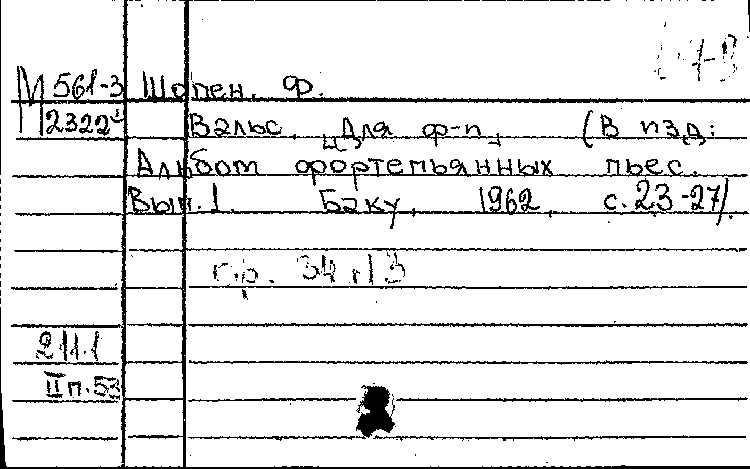 М 561-3 Шопен, Ф.
2322¹ Вальс. [Для ф-п.] (В изд:
Альбом фортепьянных пьес.
Вып. 1. Баку, 1962, с. 23-27).
г.р. 34.13
211.1
II п. 53